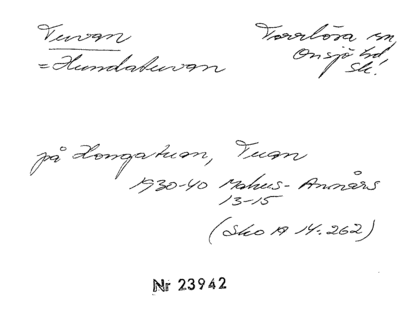 Tuvan
= Hundatuvan
Torrlösa sn,
Onsjö hd
Sk.
på Hongatuan, Tuan
1930-40 Mahus- Annårs
13-15
(Sko A 14:262)
Nr 23942